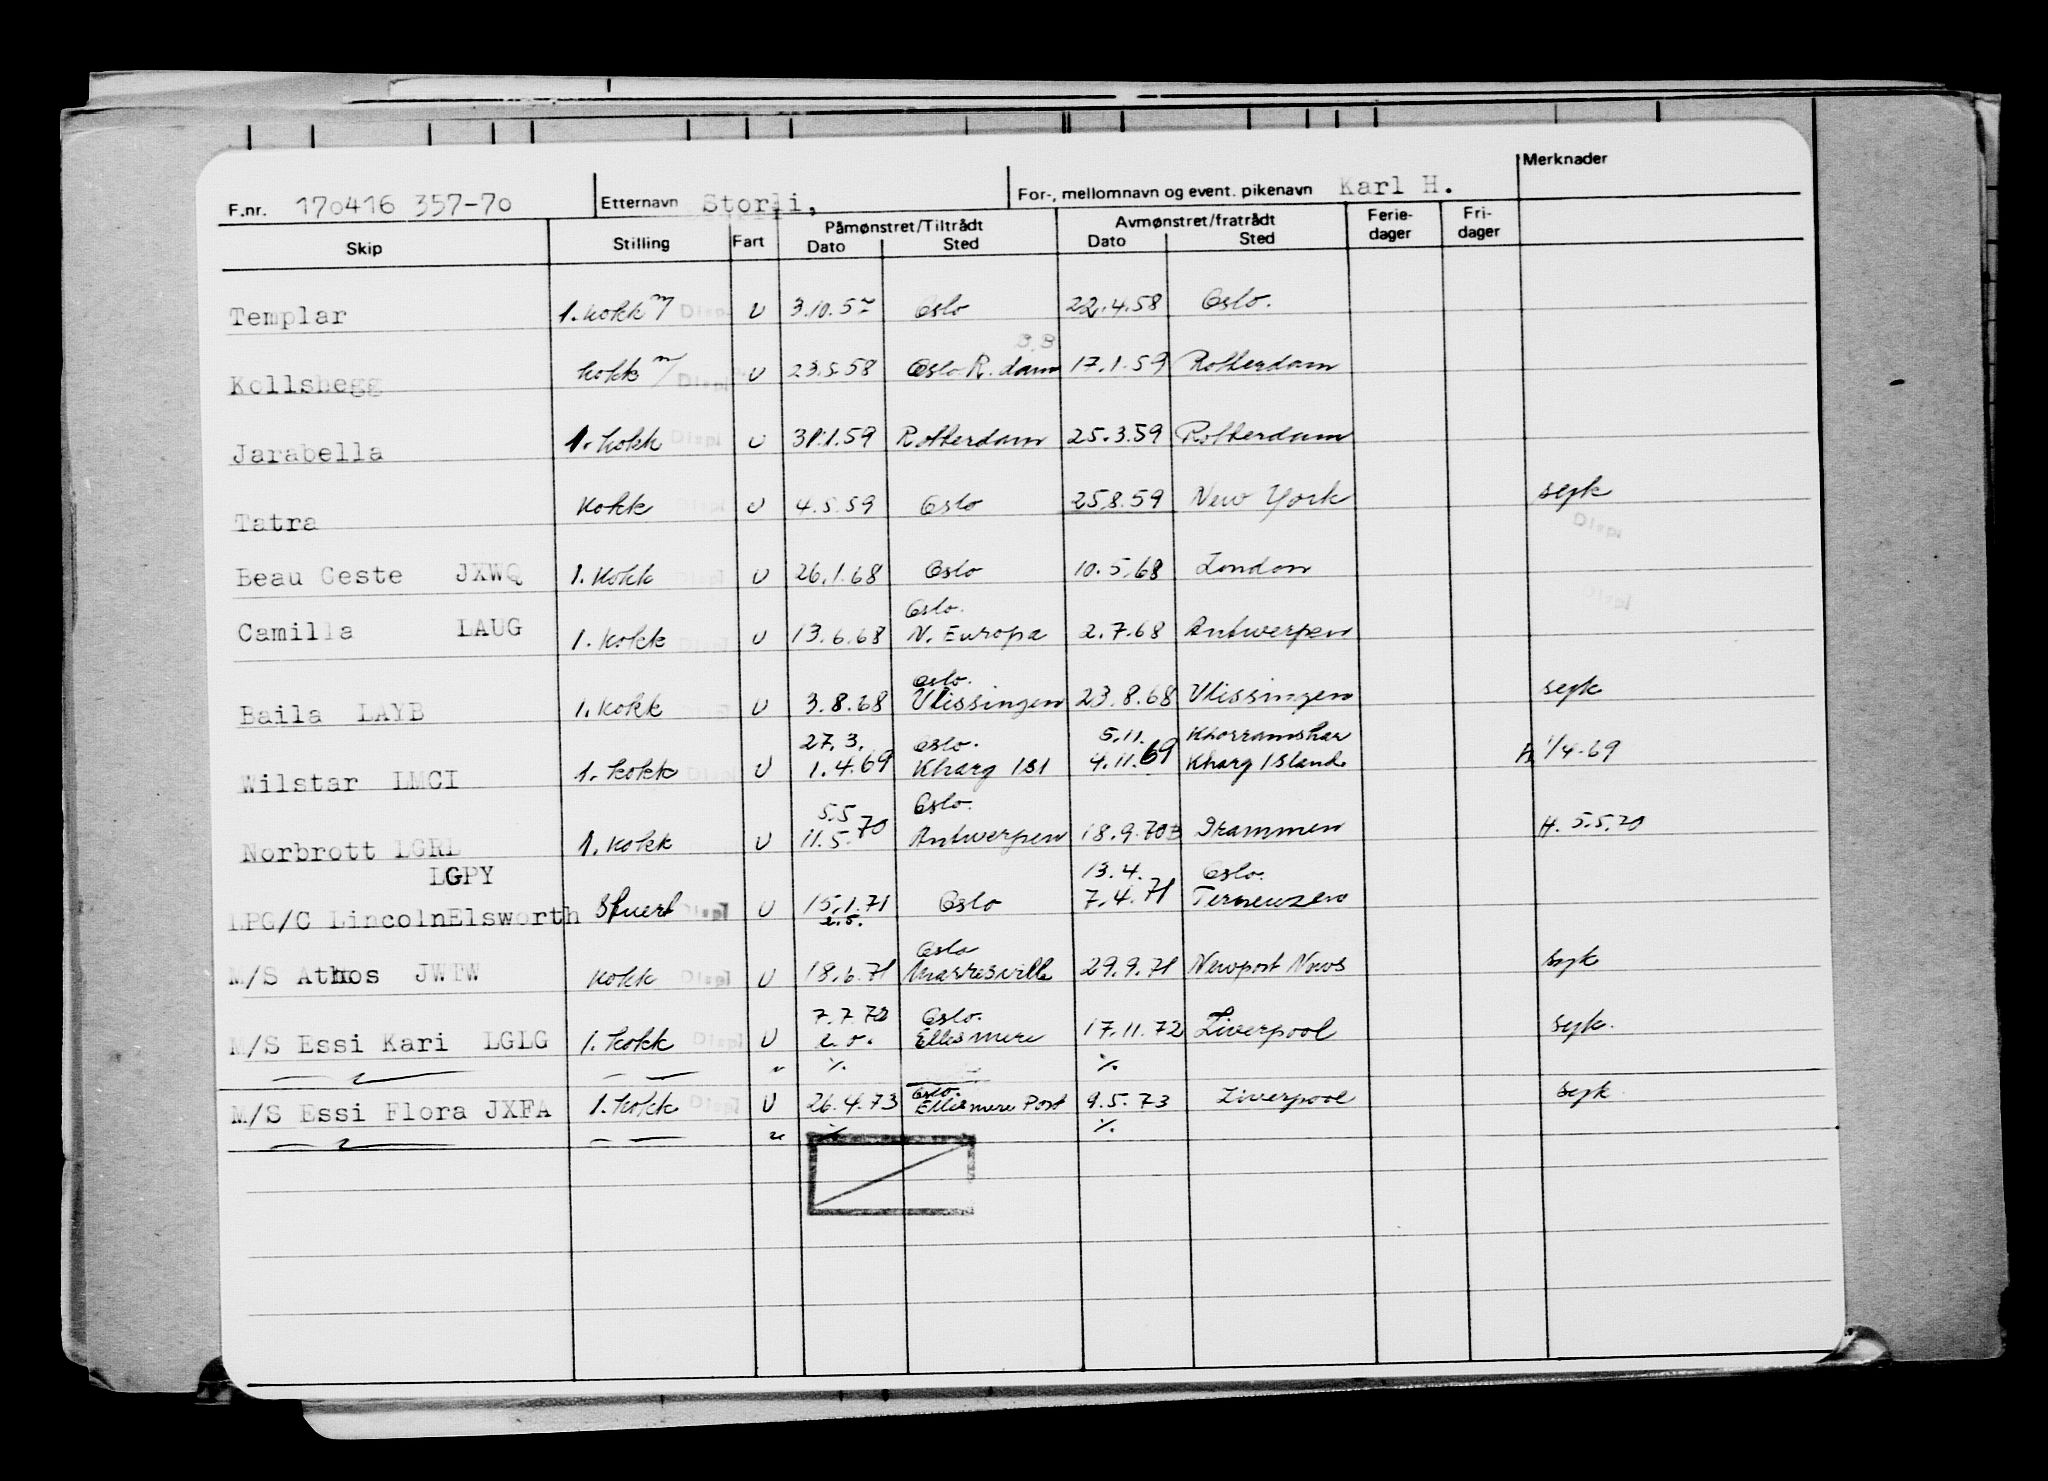 F.nr. 170416 357-70 Etternavn Storli, For-, mellomnavn og event. pikenavn Karl H. Merknader
Skip Stilling Fart Påmønstret/Tiltrådt Dato Sted Avmønstret/fratrådt Dato Sted Ferie-dager Fri-dager
Templar 1. kokk m/ U 3.10.57 Oslo 22.4.58 Oslo.
Kollshegg kokk m/ U 23.5.58 Oslo R.dam 17.1.59 Rotterdam
Jarabella 1. kokk U 31.1.59 Rotterdam 25.3.59 Rotterdam
Tatra Kokk U 4.5.59 Oslo 25.8.59 New York syk
Beau Geste JXWQ 1. Kokk U 26.1.68 Oslo 10.5.68 London
Oslo.
Camilla LAUG 1. kokk U 13.6.68 N. Europa 2.7.68 Antwerpen
Oslo.
Baila LAYB 1. kokk U 3.8.68 Vlissingen 23.8.68 Vlissingen syk
27.3. Oslo. 5.11. Khorramshar
Wilstar LMCI 1. kokk U 1.4.69 Kharg Isl 4.11.69 Kharg Island 1/4-69
5.5 Oslo.
Norbrott LGRL 1. kokk U 11.5.70 Antwerpen 18.9.70 Drammen H. 5.5.70
LGPY 13.4. Oslo.
LPG/C LincolnElsworth Stuert U 15.1.71 Oslo 7.4.71 Terneuzen
e.o.
Oslo
M/S Athos JWTW Kokk U 18.6.71 29.9.71 Newport News syk
7.7.72 Oslo.
M/S Essi Kari LGLG 1. kokk U e.o. Ellesmere 17.11.72 Liverpool syk.
— " — — " — " ·/. ·/.
Oslo.
M/S Essi Flora JXFA 1. kokk U 26.4.73 Ellesmere Port 9.5.73 Liverpool syk
— " — — " — " ·/. ·/.